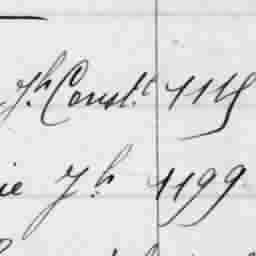 Jh. Const.t 1119
ie Jh. 1199